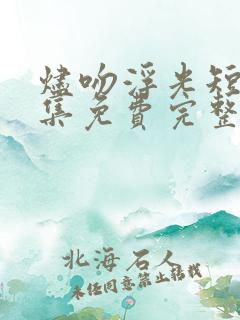 烬吻浮光短
集免费完整
北海石人
未经同意禁止转载